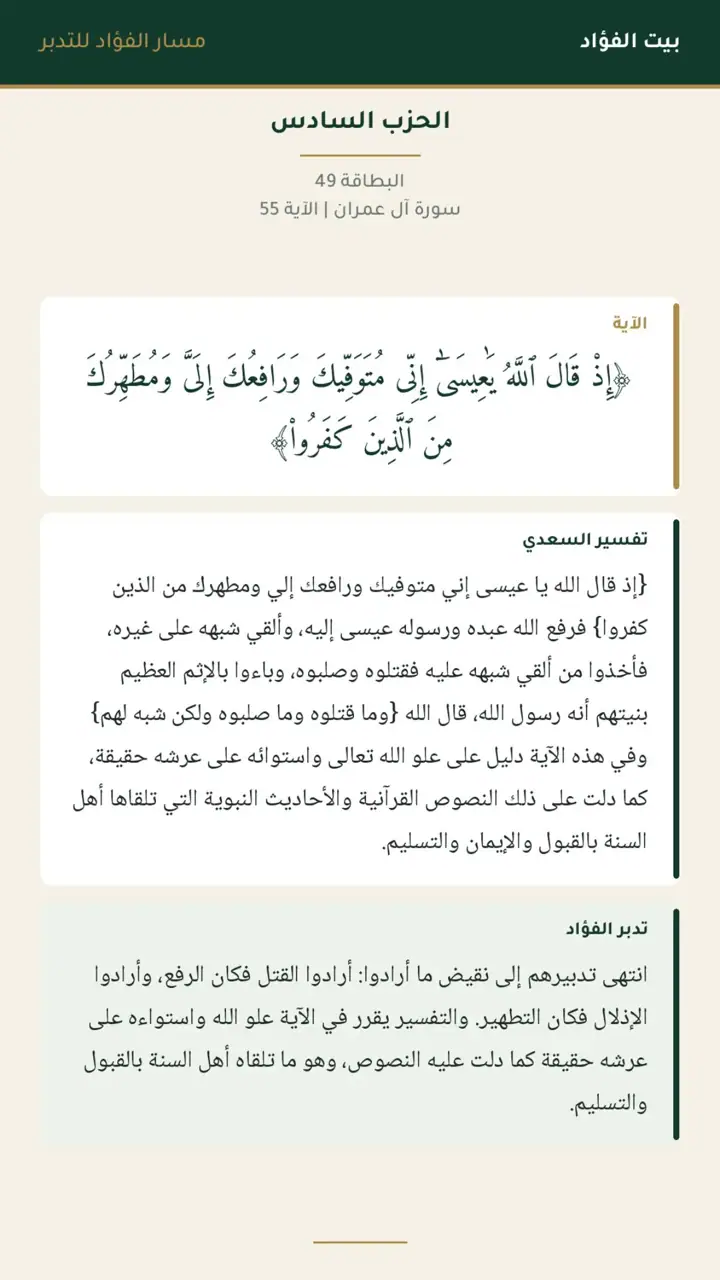 بيت الفؤاد
مسار الفؤاد للتدبر
الحزب السادس
البطاقة 49
سورة آل عمران | الآية 55
الآية
﴿إِذْ قَالَ ٱللَّهُ يَٰعِيسَىٰٓ إِنِّى مُتَوَفِّيكَ وَرَافِعُكَ إِلَىَّ وَمُطَهِّرُكَ
مِنَ ٱلَّذِينَ كَفَرُواْ﴾
تفسير السعدي
{إذ قال الله يا عيسى إني متوفيك ورافعك إلي ومطهرك من الذين
كفروا} فرفع الله عبده ورسوله عيسى إليه، وألقي شبهه على غيره،
فأخذوا من ألقي شبهه عليه فقتلوه وصلبوه، وباءوا بالإثم العظيم
بنيتهم أنه رسول الله، قال الله {وما قتلوه وما صلبوه ولكن شبه لهم}
وفي هذه الآية دليل على علو الله تعالى واستوائه على عرشه حقيقة،
كما دلت على ذلك النصوص القرآنية والأحاديث النبوية التي تلقاها أهل
السنة بالقبول والإيمان والتسليم.
تدبر الفؤاد
انتهى تدبيرهم إلى نقيض ما أرادوا: أرادوا القتل فكان الرفع، وأرادوا
الإذلال فكان التطهير. والتفسير يقرر في الآية علو الله واستواءه على
عرشه حقيقة كما دلت عليه النصوص، وهو ما تلقاه أهل السنة بالقبول
والتسليم.